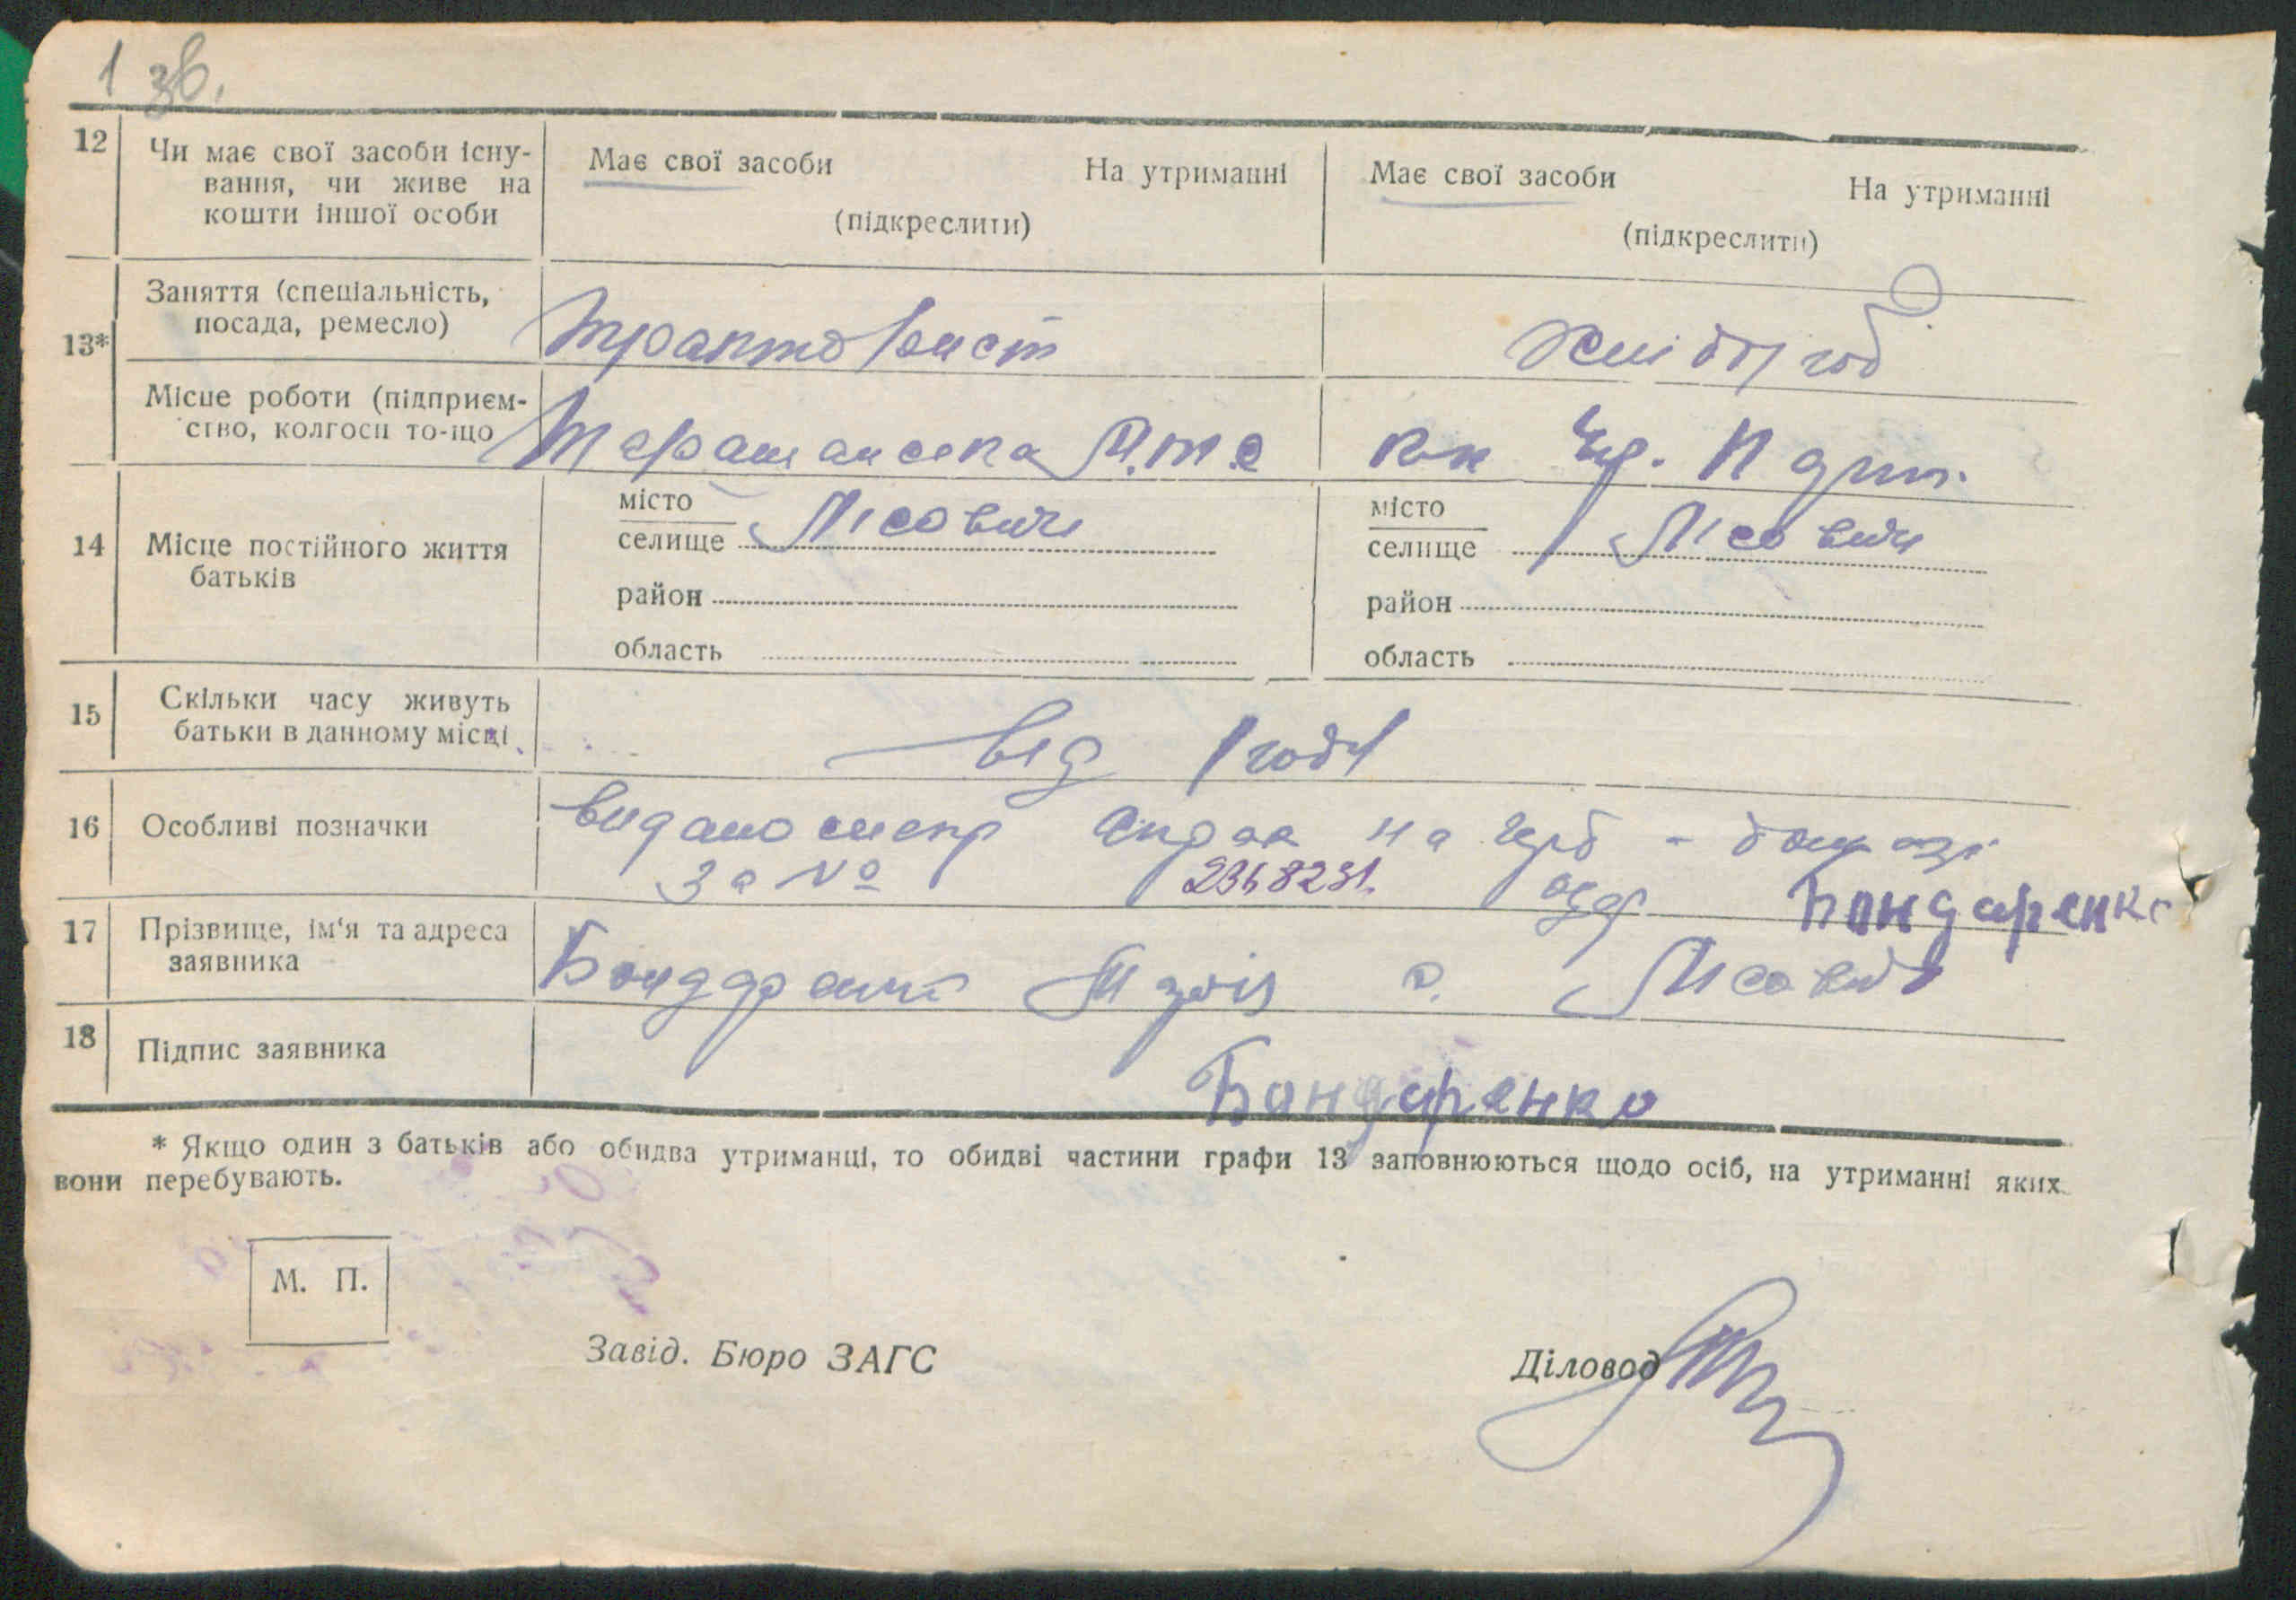 1 зв.
12 Чи має свої засоби існу-
вання, чи живе на
кошти іншої особи
Має свої засоби На утриманні
(підкреслити)
Має свої засоби На утриманні
(підкреслити)
13*
Заняття (спеціальність,
посада, ремесло)
тракторист
хлібороб
Місце роботи (підприєм-
ство, колгосп то-що
Таращанська М.т.с
14 Місце постійного життя
батьків
місто
селище Лісовичі
район
область
місто
селище Лісовичі
район
область
15 Скільки часу живуть
батьки в данному місці
від
16 Особливі позначки
видано на герб
за № 2368231.
Бондаренко
17 Прізвище, ім‘я та адреса
заявника
Бондаренко с. Лісовичі
18 Підпис заявника
Бондаренко
* Якщо один з батьків або обидва утриманці, то обидві частини графи 13 заповнюються щодо осіб, на утриманні яких
вони перебувають.
М. П.
Завід. Бюро ЗАГС
Діловод